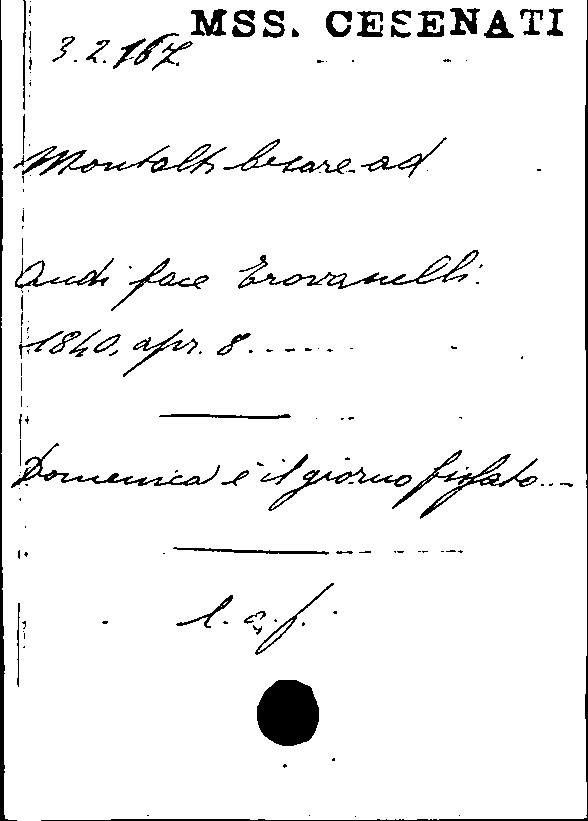 MSS. CESENATI
3.2.167.
Montalti Cesare ad
Audiface Trovanelli.
1840, apr. 8......
Domenica è il giorno fissato...
l. a. f.